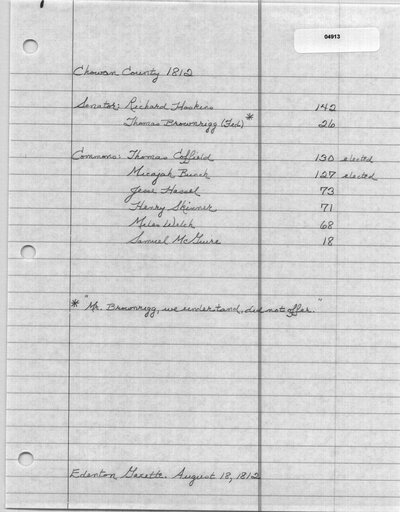 04913
Chowan County 1812
Senator: Richard Hoskins 142
Thomas Brownrigg (Fed) * 26
Commons: Thomas Coffield 130 elected
Micajah Bunch 127 elected
Jesse Hassel 73
Henry Skinner 71
Miles Welch 68
Samuel McGuire 18
* "Mr. Brownrigg, we understand, did not offer."
Edenton Gazette. August 18, 1812